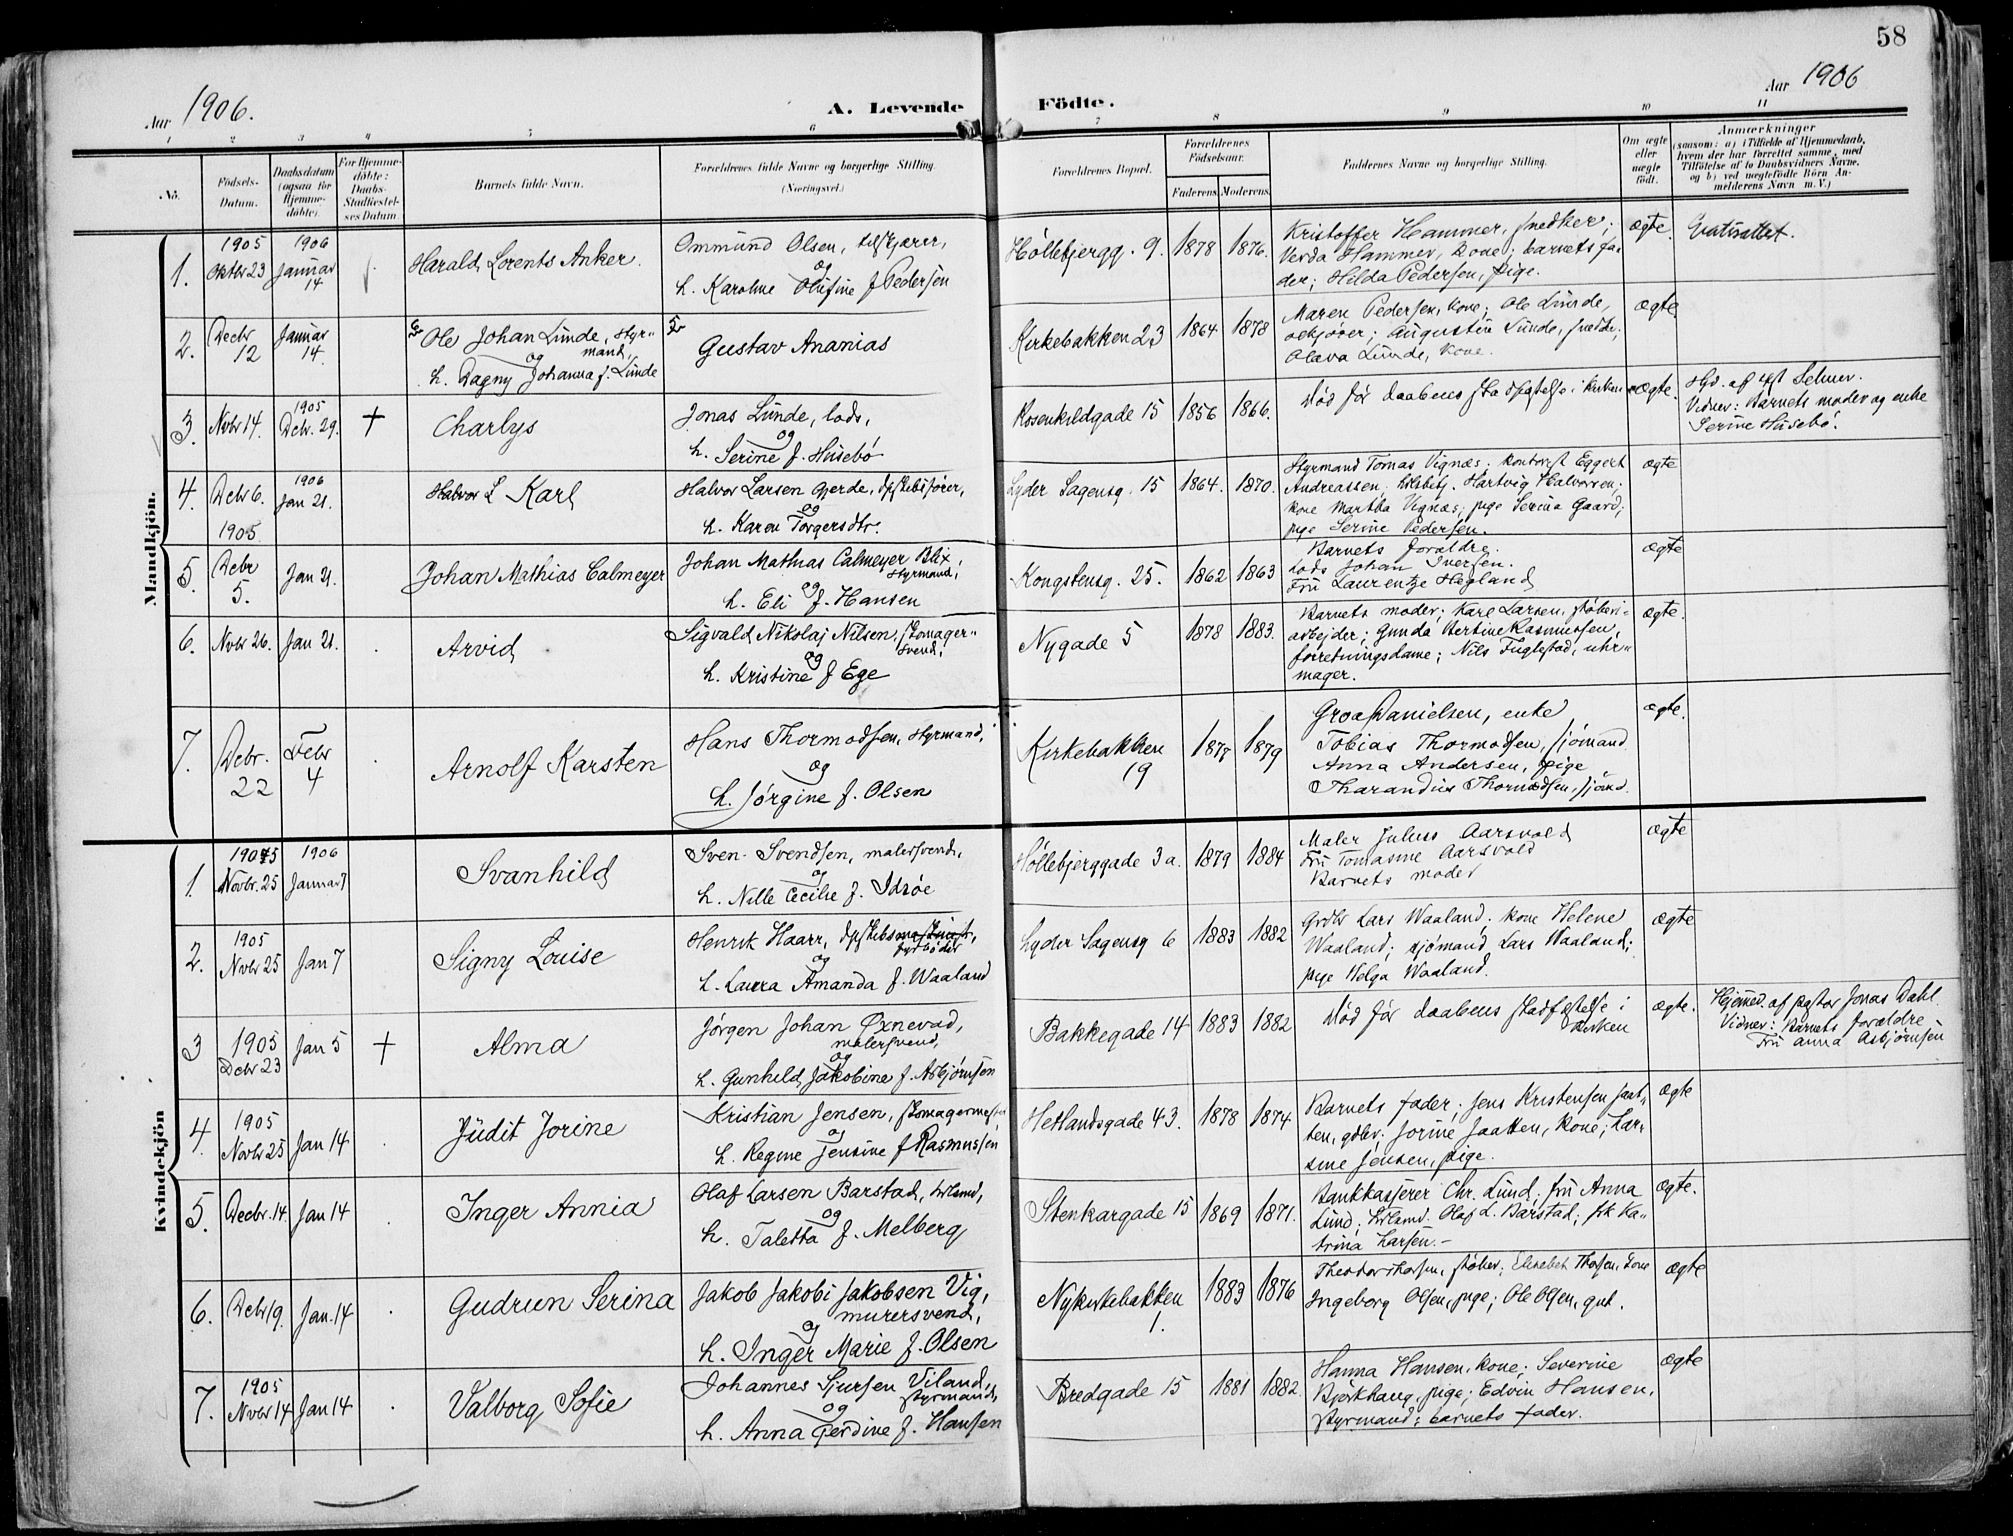 58
Aar 1906.
A. Levende
Födte.
Aar 1906
1 2 3 4 5 6 7 8 9 10 11
No.
Födsels-
Datum.
Daabsdatum
(ogsaa for
Hjemme-
döbte).
For Hjemme-
döbte:
Daabs-
Stadfæstel-
ses Datum
Barnets fulde Navn.
Forældrenes fulde Navne og borgerlige Stilling.
(Næringsvei.)
Forældrenes Bopæl.
Forældrenes
Födselsaar.
Faderens.
Moderens.
Faddernes Navne og borgerlige Stilling.
Om ægte
eller
uægte
født.
Anmærkninger
(saasom: a) i Tilfælde af Hjemmedaab,
hvem der har forrettet samme, med
Tilføielse af to Daabsvidners Navne,
og b) ved uægtefödte Börn An-
melderens Navn m. V.)
Mandkjön.
1.
1905
Oktbr 23
1906
Januar
14
Harald Lorents Anker.
Ommund Olsen,
og
h. Karoline Olufine f Pedersen
Høllebjergg. 9.
1878
1876.
Kristoffer Hammer, snedker;
Verda Hammer, kone; barnets fa-
der; Hilda Pedersen, pige.
ægte.
2.
Decbr
12
Januar
14.
Ole Johan Lunde, styr-
mand,
og
h. Dagny Johanna f. Lunde
Gustav Ananias
Kirkebakken 23
1864
1878
Maren Pedersen, kone; Ole Lunde,
Augustin Lunde,
Olava Lunde, kone.
ægte
3.
Novbr 14.
1905
Debr. 29.
+
Charlys
Jonas Lunde, lods,
og
h. Serine f. Husebø
Rosenkildgade 15
1856
1866.
Død før daabens stadfæstelse i kirken
ægte.
Vidner: Barnets moder og enke
Serine Husebø.
4.
Debr 6.
1905
1906
Jan 21.
Karl
Halvor Larsen Gjerde,
og
h. Karen Torgersdtr.
Lyder Sagensg. 15
1864.
1870.
Styrmand Tomas Vignæs; kontorist Eggert
Andreassen; Hartvig Halvorsen;
kone Martha Vignæs; pige Serina Gaard;
pige Serine Pedersen.
ægte
5.
Debr
5.
Jan 21.
Johan Mathias Calmeyer
Johan Mathias Calmeyer Blix
styrmand;
og
h. Eli f. Hansen
Kongstensg. 25.
1862
1863
Barnets forældre.
Lods Johan Iversen.
Fru Laurentze Hegland
ægte
6.
Novbr 26.
Jan 21.
Arvid
Sigvald Nikolaj Nilsen, skomager-
svend,
og
h. Kristine f Ege
Nygade 5
1878
1883.
Barnets moder; Karl Larsen, støberi-
arbejder; Gunda Bertine Rasmussen,
forretningsdame; Nils Fuglestad, uhr-
mager.
ægte.
7.
Debr.
22
Febr
4
Arnolf Karsten
Hans Thormodsen, styrmand,
og
h. Jørgine f. Olsen
Kirkebakken
19
1877
1879
Groa Danielsen, enke
Tobias Thormodsen, sjømand
Anna Andersen, pige
Tharandius Thormodsen, sjømd.
ægte.
Kvindekjön
1.
1905
Novbr. 25
1906
Januar 7
Svanhild
Sven Svendsen, malersvend,
og
h. Nille Cecilie f. Idsøe
Høllebjerggade 3a.
1879
1884
Maler Julius Aarsvold
Fru Tomasine Aarsvold
Barnets moder
ægte
2.
1905
Novbr 25
Jan 7
Signy Louise
Henrik Haarr,
fyrbøder
og
h. Laura Amanda f. Waaland
Lyder Sagensg 6
1883
1882
Grdbr Lars Waaland; kone Helene
Waaland; sjømand Lars Waaland;
pige Helga Waaland.
ægte
3
1905
Debr 23
Jan 5
+
Alma
Jørgen Johan Øxnevad,
malersvend,
og
h. Gunhild Jakobine f. Asbjørnsen
Bakkegade 14
1883
1882
Død før daabens stadfæstelse i
kirken
ægte.
Hjemmed. af pastor Jonas Dahl
Vidner: Barnets forældre
Fru Anna Asbjørnsen
4.
1905
Novbr 25
Jan 14
Judit Jorine
Kristian Jensen, skomagermester
og
h. Regine Jensine f Rasmussen
Hetlandsgade 43.
1878
1874
Barnets fader; Jens Kristensen Jaat-
ten, gdbr; Jorine Jaatten, kone; Lar-
sine Jensen, pige.
ægte
5.
Decbr. 14.
Jan 14
Inger Annia
Olaf Larsen Barstad,
og
h. Taletta f. Melberg
Stenkargade 15
1869
1871.
Bankkasjerer Chr. Lund; fru Anna
Lund; Olaf L. Barstad; frk Ka-
trina Larsen.-
ægte.
6.
Debr 19.
Jan. 14
Gudrun Serina
Jakob Jakobi Jakobsen Vig,
murersvend,
og
h. Inger Marie f. Olsen
Nykirkebakken
1.
1883
1876
Theodor Thorsen, støber; Elisabet Thorsen, kone
Ingeborg Olsen, pige; Ole Olsen, gut.
ægte
7.
1905
Novbr 14
Jan 14
Valborg Sofie
Johannes Sjursen Viland,
styrmand,
og
h. Anna Gerdine f. Hansen
Bredgade 15
1881
1882.
Hanna Hansen, kone; Severine
Bjørkhaug, pige; Edvin Hansen,
styrmand; barnets fader.
ægte